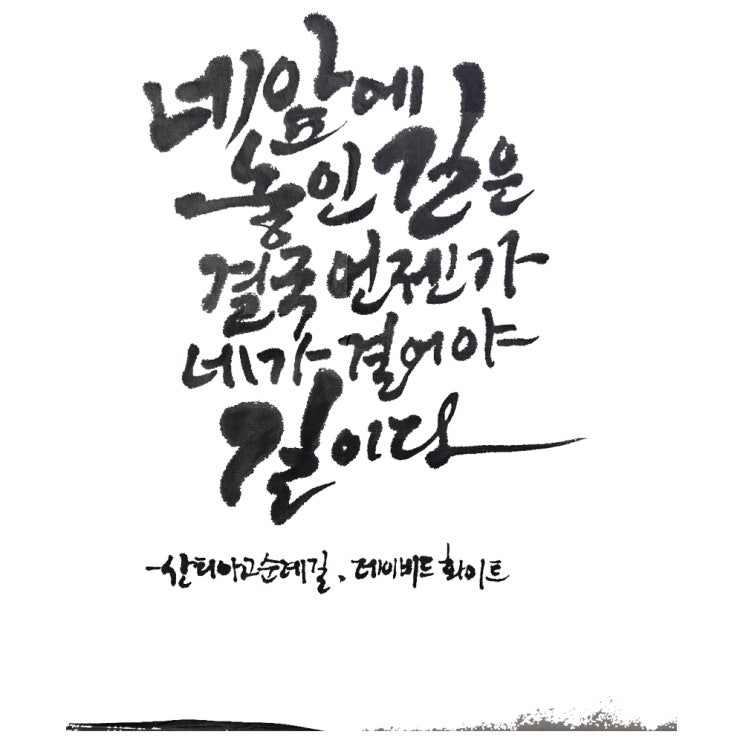 네 앞에
놓인 길은
결국 언젠가
네가 걸어야
길이다
-산티아고순례길, 데이비드 화이트